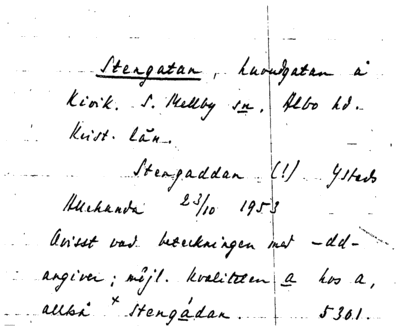 Stengatan, huvudgatan å
Kivik. S. Mellby sn. Albo hd.
Krist. län.
Stengaddan (!) Ystads
Allehanda 23/10 1953
Ovisst vad beteckningen med -dd-
angiver; möjl. kvaliteten a hos a,
alltså * Stengádan. 5301.